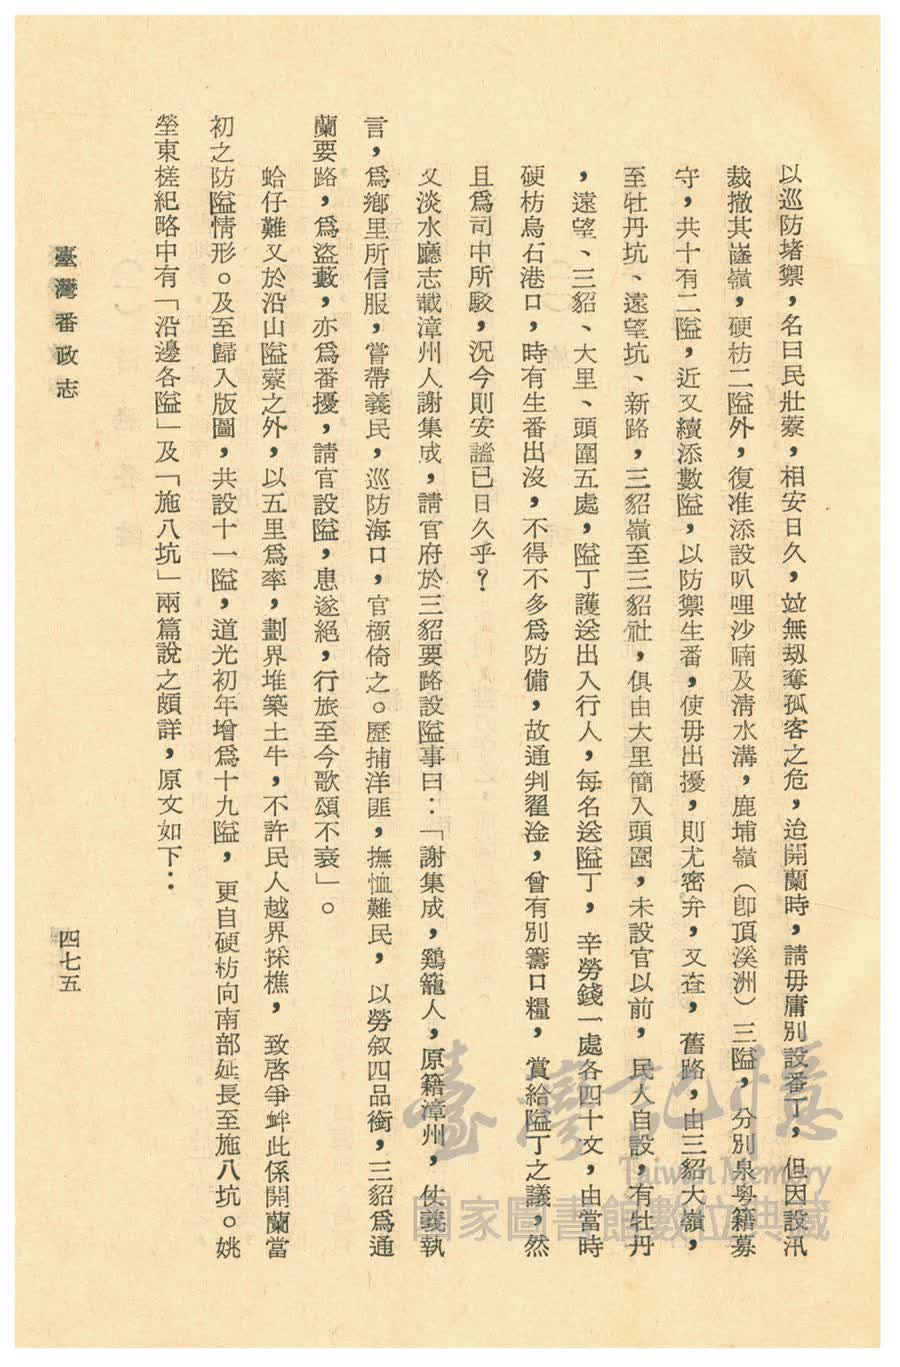 以巡防堵禦，名曰民壯藔，相安日久，竝無刼奪孤客之危，迨開蘭時，請毋庸別設番丁，但因設汛
裁撤其㠠嶺，硬枋二隘外，復准添設叭哩沙喃及清水溝，鹿埔嶺（卽頂溪洲）三隘，分別泉粤籍募
守，共十有二隘，近又續添數隘，以防禦生番，使毋出擾，則尤密弁，又查，舊路，由三貂大嶺，
至牡丹坑、遠望坑、新路，三貂嶺至三貂社，俱由大里簡入頭圍，未設官以前，民人自設，有牡丹
，遠望、三貂、大里、頭圍五處，隘丁護送出入行人，每名送隘丁，辛勞錢一處各四十文，由當時
硬枋烏石港口，時有生番出沒，不得不多爲防備，故通判翟淦，曾有別籌口糧，賞給隘丁之議，然
且爲司中所駁，況今則安謐已日久乎？
又淡水廳志載漳州人謝集成，請官府於三貂要路設隘事曰：「謝集成，鷄籠人，原籍漳州，仗義執
言，爲鄕里所信服，嘗帶義民，巡防海口，官極倚之。歷捕洋匪，撫恤難民，以勞叙四品銜，三貂爲通
蘭要路，爲盜藪，亦爲番擾，請官設隘，患遂絕，行旅至今歌頌不衰」。
蛤仔難又於沿山隘藔之外，以五里爲率，劃界堆築土牛，不許民人越界採樵，致啓爭衅此係開蘭當
初之防隘情形。及至歸入版圖，共設十一隘，道光初年增爲十九隘，更自硬枋向南部延長至施八坑。姚
瑩東槎紀略中有「沿邊各隘」及「施八坑」兩篇說之頗詳，原文如下：
臺灣番政志
四七五
臺灣記憶
Taiwan Memory
國家圖書館數位典藏